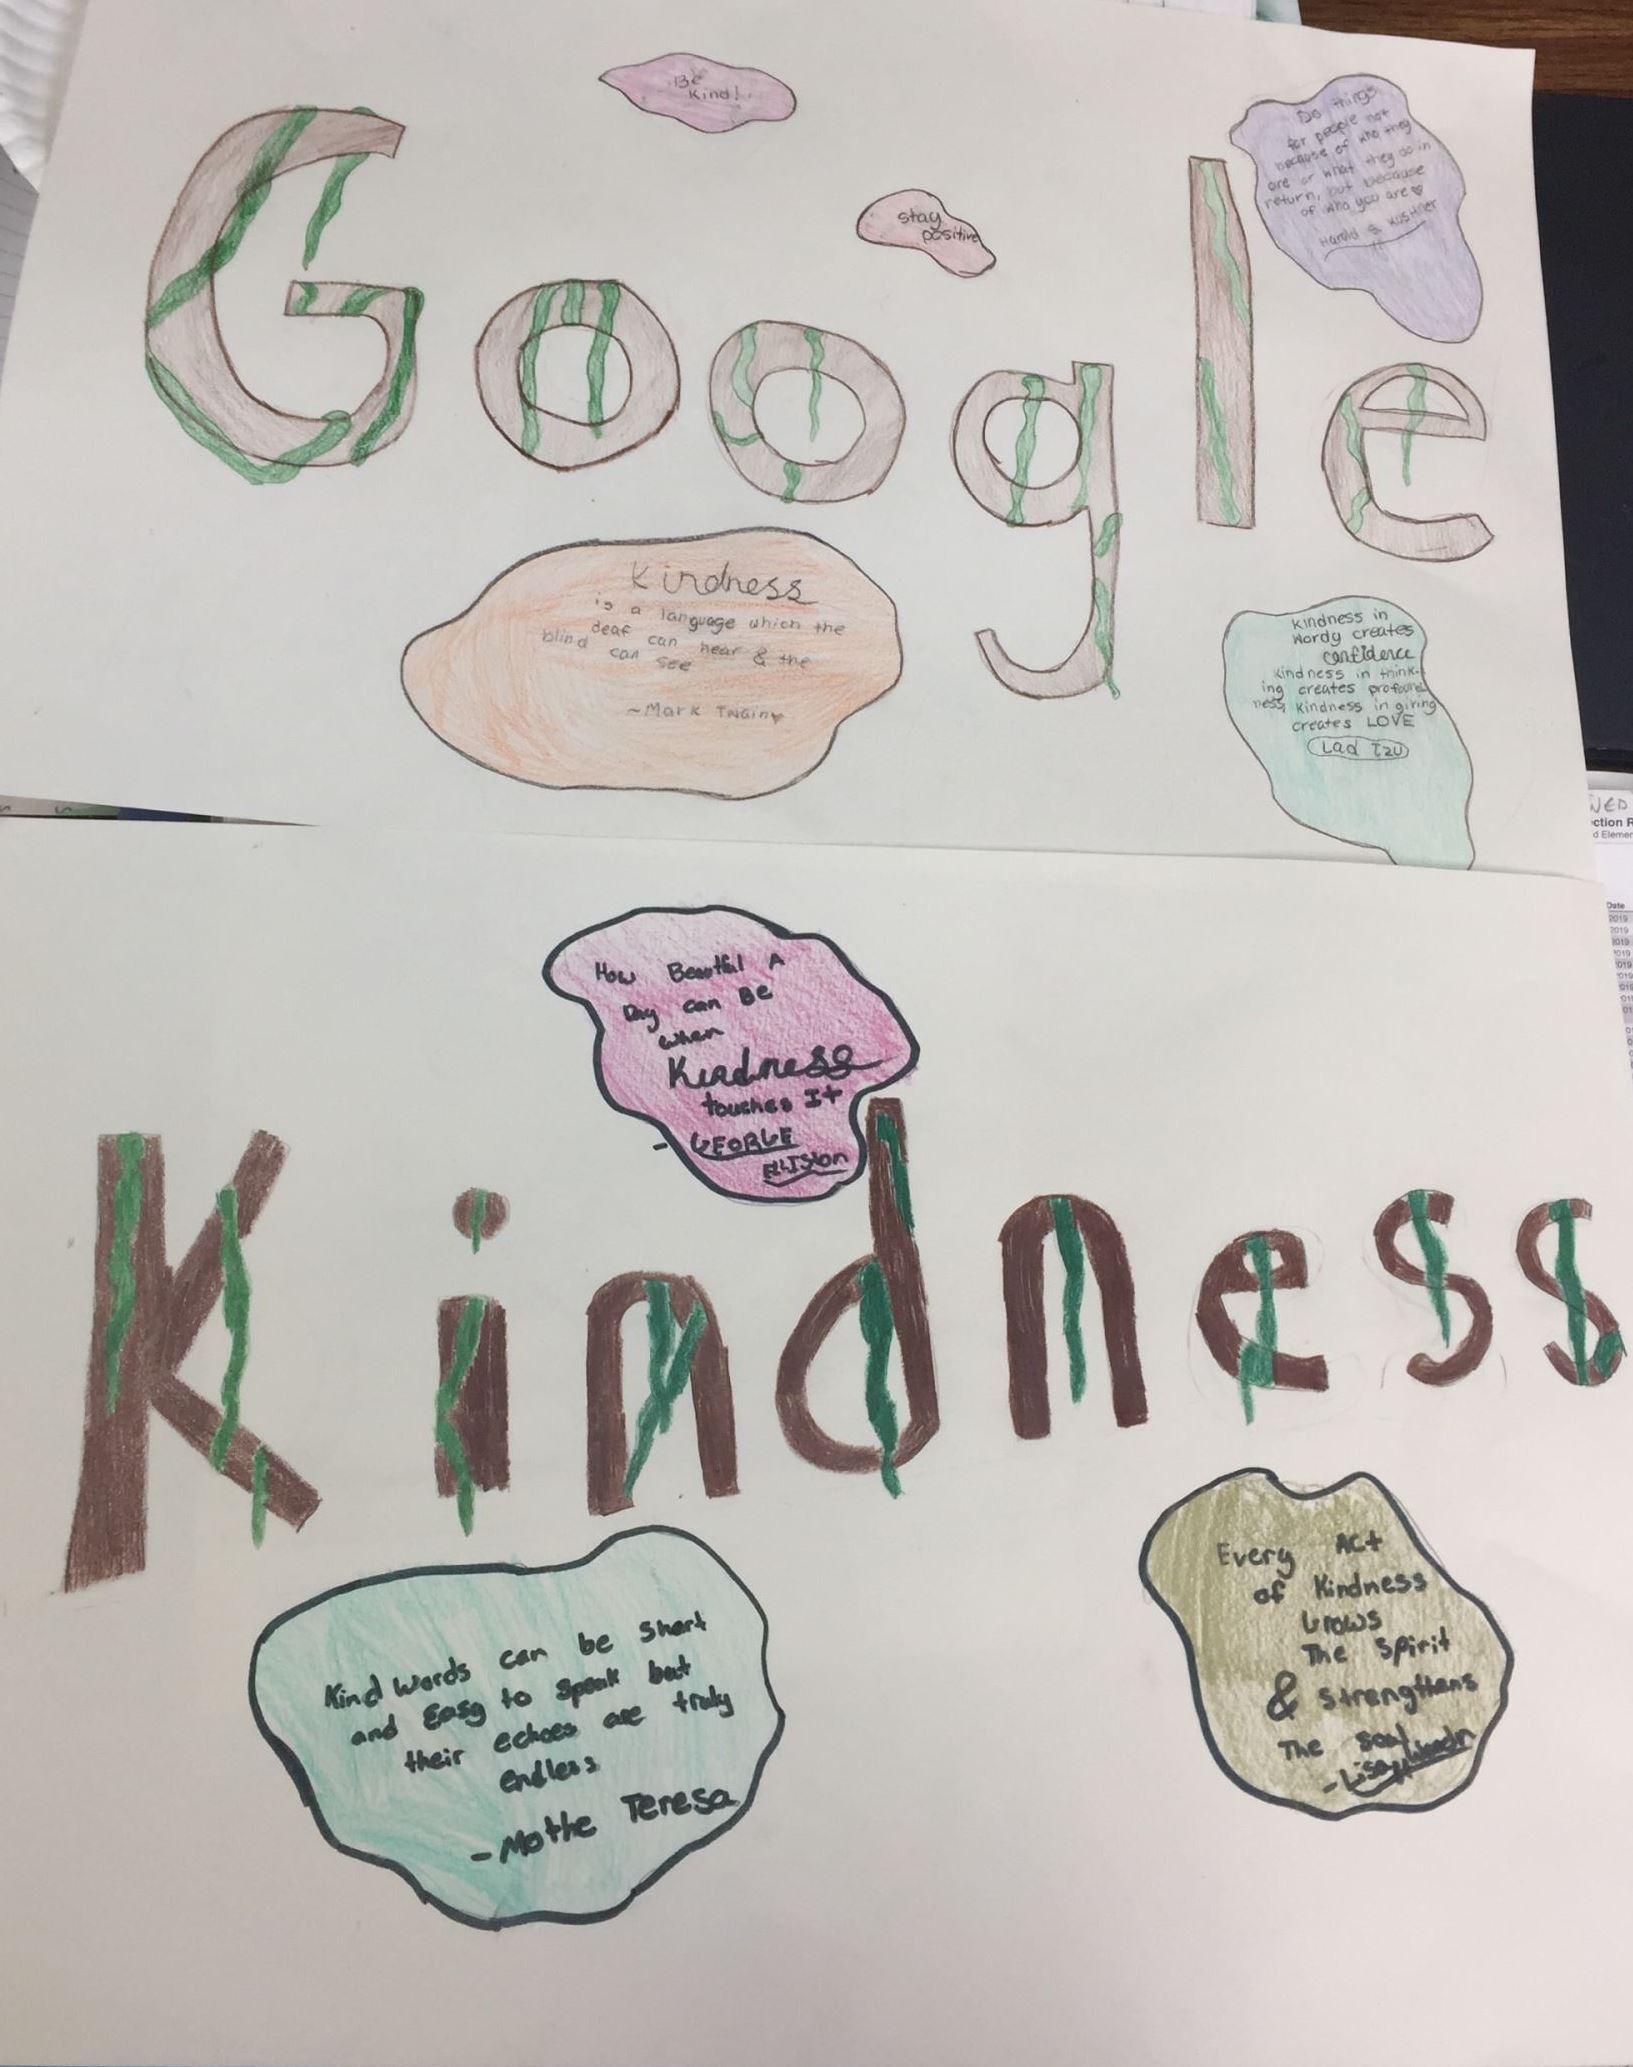 Be
Kind!
Do things
for people not
because of who they
are or what they do in
return, but because
of who you are
Harold S Kushner
stay
positive
Google
Kindness
is a language which the
deaf can hear & the
blind can see
~Mark Twain
Kindness in
wordy creates
confidence
kindness in think-
ing creates profound
ness, kindness in giving
creates LOVE
Lad Tzu
NED
ction R
d Elemen
Date
2019
2019
2019
How Beautful A
Day can Be
when
Kindness
touches It
- GEORGE
Elliston
Kindness
Every Act
of Kindness
Grows
The Spirit
& strengthens
The soul
- Lisa
Kind words can be short
and Easy to speak but
their echoes are truly
Endless
- Mothe Teresa